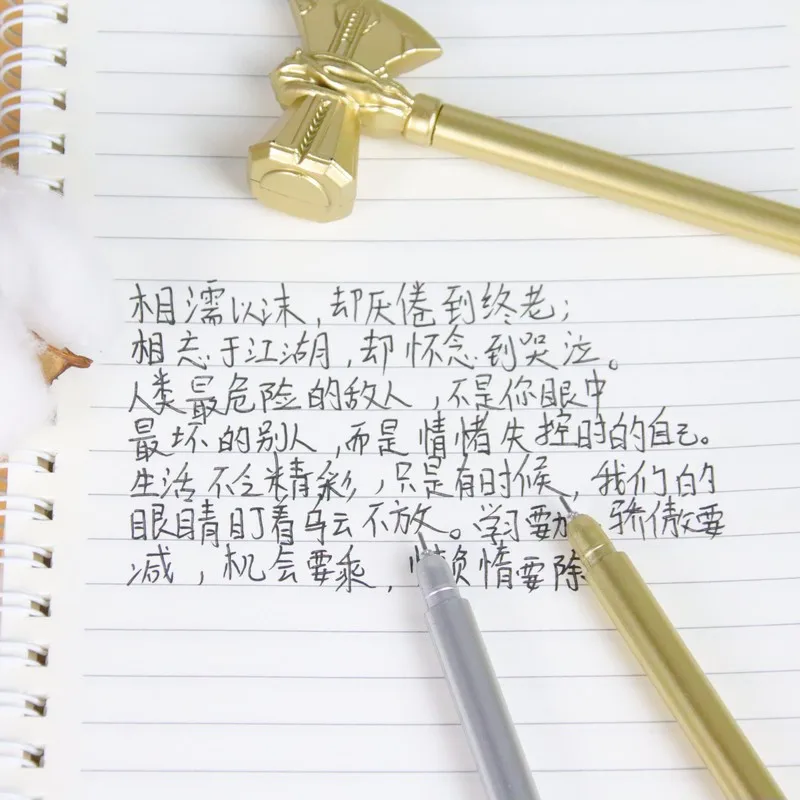 相濡以沫,却厌倦到终老;
相忘于江湖,却怀念到哭泣。
人类最危险的敌人,不是你眼中
最坏的别人,而是情绪失控时的自己。
生活不乏精彩,只是有时候,我们的
眼睛盯着乌云不放。学习要加 骄傲要
减,机会要乘,懒惰要除